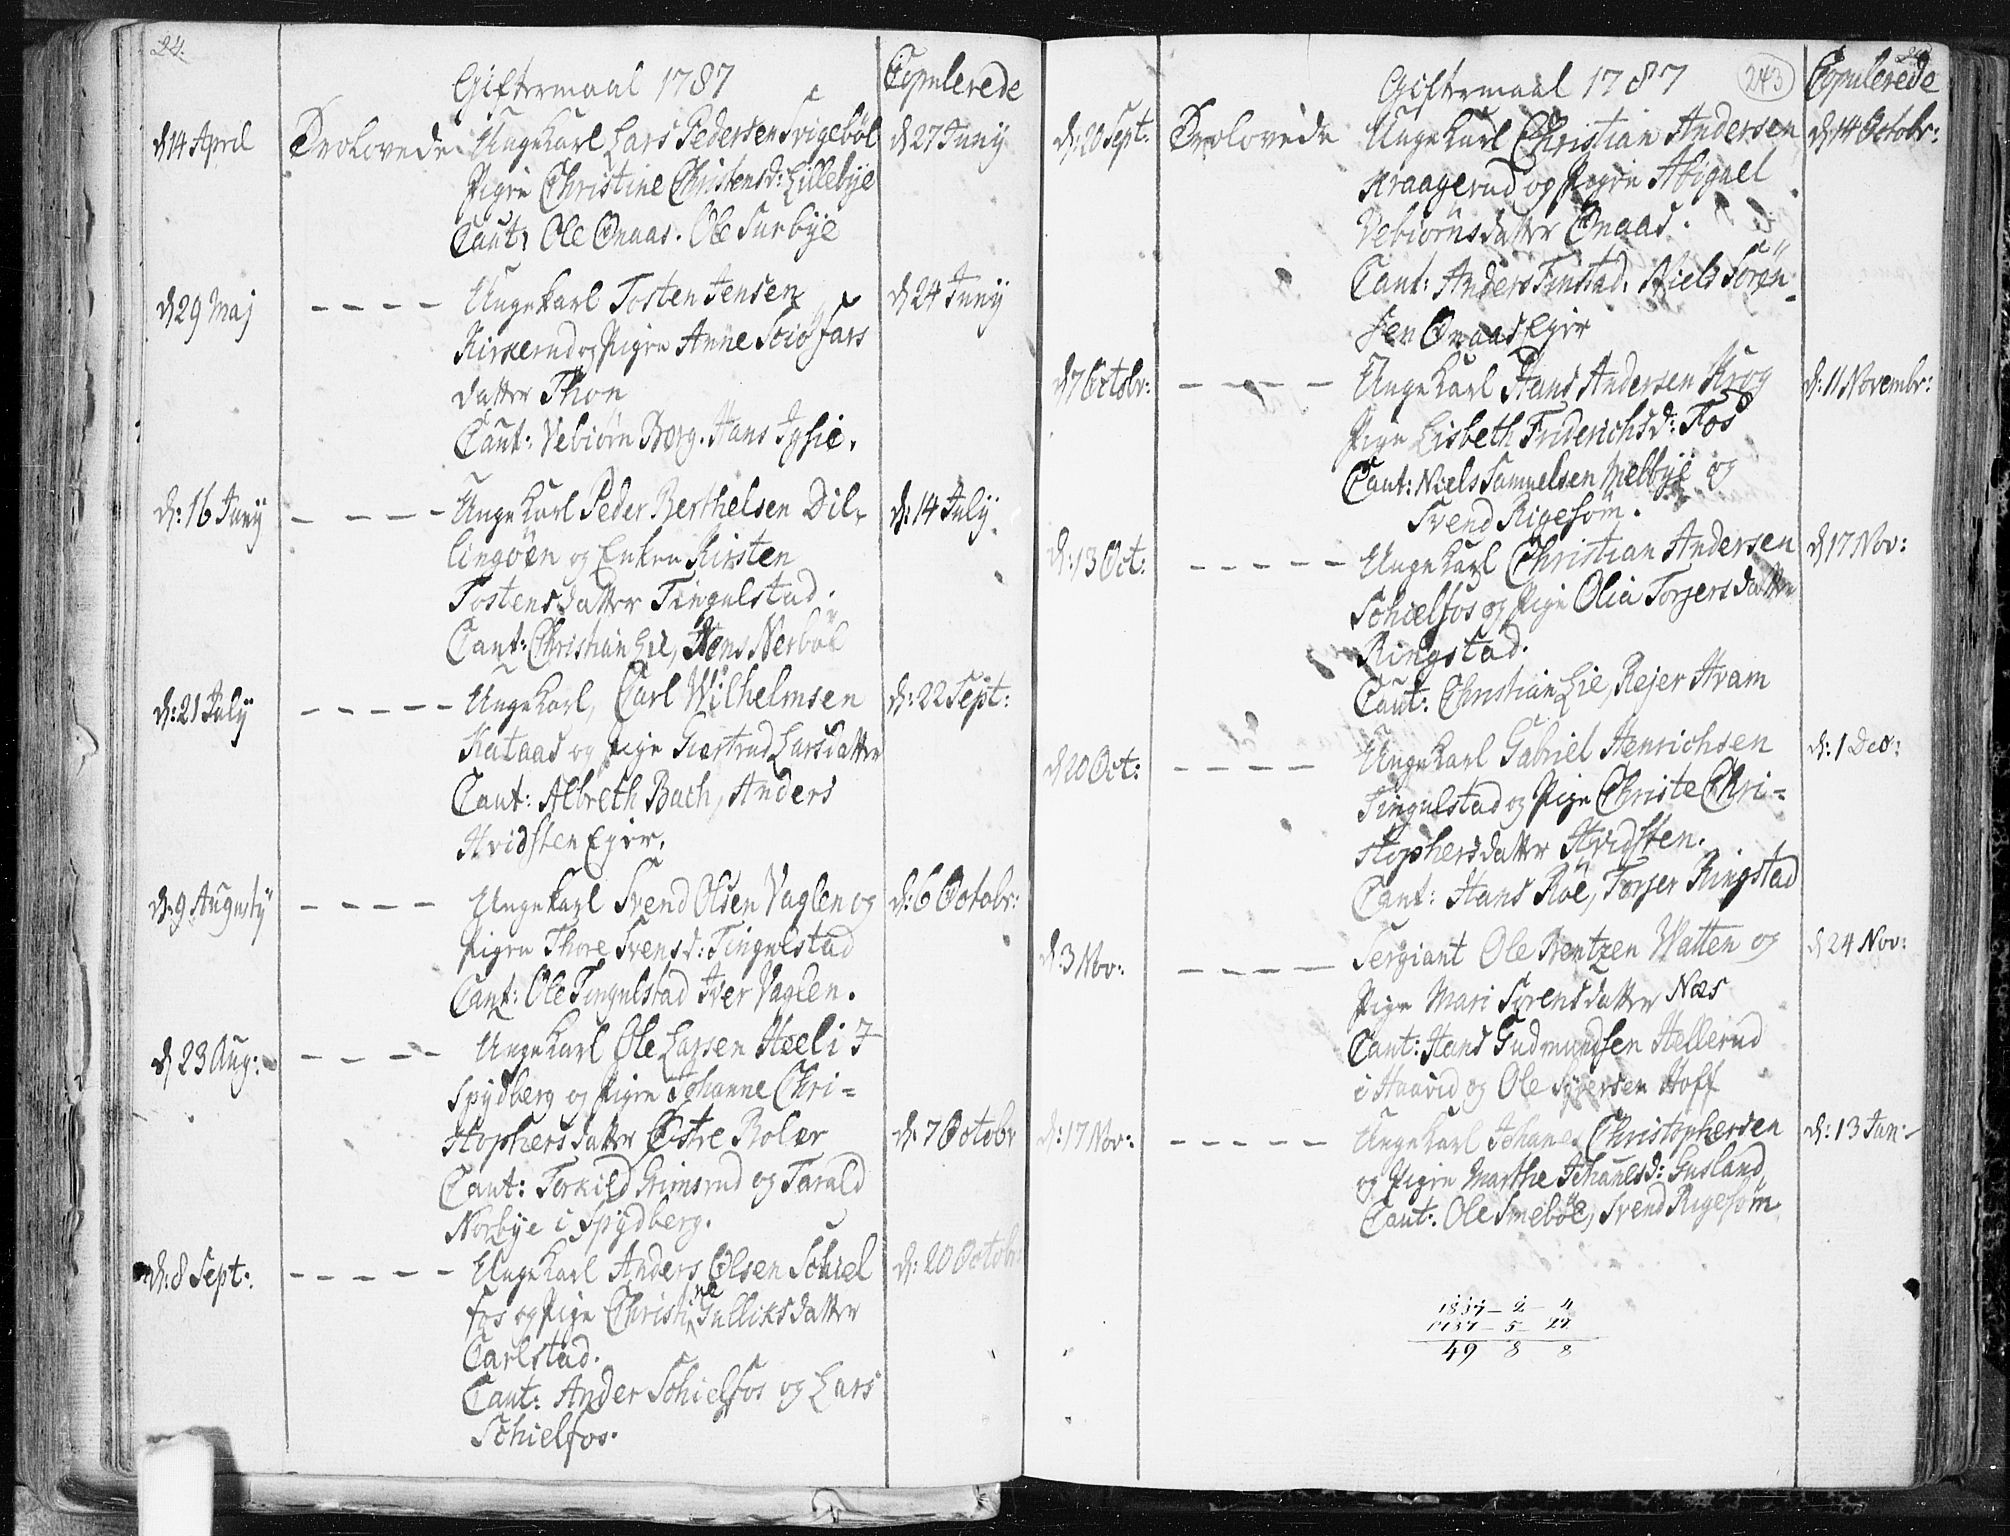 24.
Giftermaal 1787
Copulerede
d 14 April Trolovede Ungekarl Lars Pedersen Svigebøl d 27 Juny
Pigen Christine Christensd: Lillebye
Caut: Ole Onaas. Ole Surbye
d 29 Maj - - - - Ungekarl Tosten Jensen d 24 Juny
Kirkerud og Pigen Anne
datter Thon
Caut: Vebiørn Borg. Hans Igsie.
d: 16 Juny - - - - Ungekarl Peder Berthelsen Dil- d: 14 July
lingöen og Enken Kirsten
Tostensdatter Tingulstad.
Caut: Christian Lie, Hans Nerböl
d: 21 July - - - - - Ungekarl, Carl Wilhelmsen d: 22 Sept:
Kataas og Pige Giertrud Larsdatter
Caut: Albreth Bach, Anders
Hvidsten Egir.
d: 9 Augusty - - - - Ungekarl Svend Olsen Vaglen og d: 6 Octobr:
Pigen Thore Svensd: Tingulstad
Caut: Ole Tingulstad Iver Vaglen.
d 23 Aug: - - - - Ungekarl Ole Larsen Heeli I
Spydberg og Pigen Johanne Chri-
stophersdatter Østre Roler d. 7 Octobr
Caut: Torkild Grimsrud og Tarald
Norbye i Spydberg.
d: 8 Sept: - - - - - Ungekarl Anders Olsen Schiel d: 20 Octobr:
fos og Pige Christine Gulliksdatter
Carlstad.
Caut: Ander Schielfos og Lars
Schielfos.
Giftermaal 1787
243
Copulerede
d: 20 Sept: Trolovede Ungekarl Christian Andersen d: 14 Octobr:
Kraagerud og Pigen Abigael
Vebiørnsdatter Onaas.
Caut: Anders Finstad. Niels Sören-
sen Onaas Egir
d 7 Octobr: - - - - Ungekarl Hans Andersen Krog d: 11 Novembr:
Pige Lisbeth Friderichsd: Fos
Caut: Niels Samuelsen Melbye og
Svend Rigesöm.
d: 13 Oct: - - - - - Ungekarl Christian Andersen d 17 Nov:
Schielfos og Pige Olia Torgersdatter
Ringstad.
Caut: Christian Lie, Rejer Hvam
d 20 Oct: - - - - Ungekarl Gabriel Henrichsen d: 1 Dec:
Tingulstad og Pige Christe Chri-
stophersdatter Hvidsten.
Caut: Hans Röe, Torger Ringstad
d. 3 Nov: - - - - Sergiant Ole Bentzen Watten og d 24 Nov:
Pige Mari Sørensdatter Næs
Caut: Hans Gudmundsen Hellerud
i Haavid og Ole Syversen Hoff
d: 17 Nov: - - - - - Ungekarl Johanes Christophersen d: 13 Jan:
og Pigen Marthe Johanesd: Gusland
Caut: Ole Smeböl, Svend Rigesöm
1837 - 2 - 4
1787 - 5 - 27
49 8 8